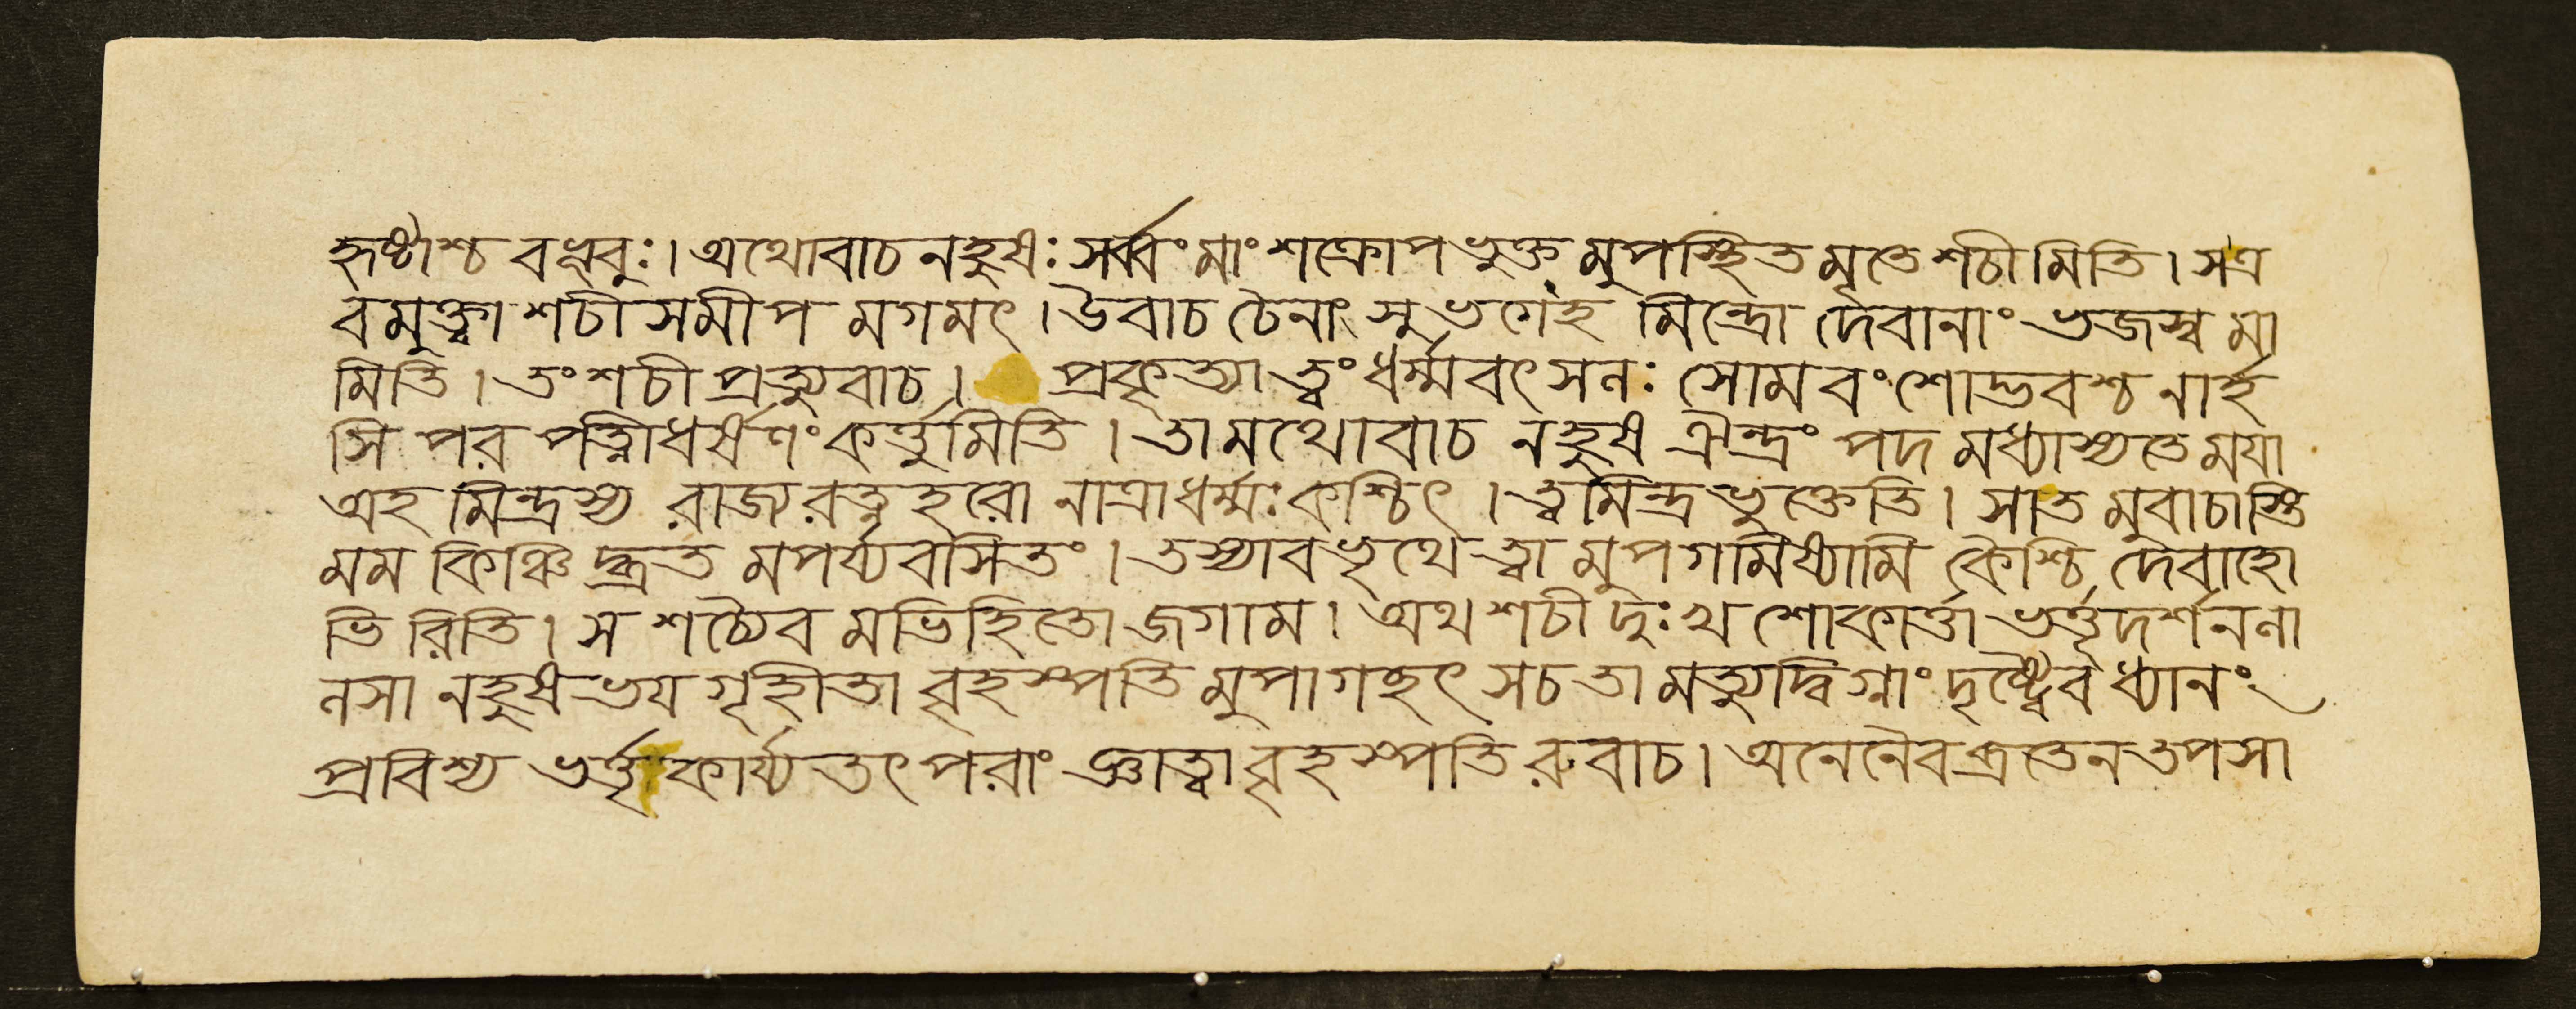 হৃষ্টাশ্চ বভূবুঃ। অথোবাচ নহুষঃ সর্ব্বং মাং শক্রোপভুক্তমুপস্থিতমৃতে শচীমিতি। সএ
বমুক্ত্বা শচীসমীপ মগমৎ। উবাচ চৈনাং সুভগেহ মিন্দ্রো দেবানাং ভজস্ব মা
মিতি। তং শচী প্রত্যুবাচ। প্রকৃত্যা ত্বং ধর্ম্মবৎসলঃ সোমবংশোদ্ভবশ্চ নার্হ
সি পর পত্নীধর্ষণং কর্ত্তুমিতি। তামথোবাচ নহুষ ঐন্দ্রং পদ মধ্যাস্যতে ময়া
অহ মিন্দ্রস্য রাজ্যরত্নহরো নাত্রাধর্ম্মঃ কশ্চিৎ। ত্বমিন্দ্রভুক্তেতি। সাত মুবাচাস্তি
মম কিঞ্চিদ্ব্রত মপর্য্যবসিতং। তস্যাবভৃথে ত্বা মুপগমিষ্যামি কৈশ্চি দেবাহো
ভি রিতি। স শচ্যৈব মভিহিতো জগাম। অথ শচী দুঃখ শোকার্ত্তা ভর্ত্তৃদর্শনলা
লসা নহুষভয় গৃহীতা বৃহস্পতি মুপাগচ্ছৎ সচ তা মত্যুদ্বিগ্নাং দৃষ্ট্বৈব ধ্যানং
প্রবিশ্য ভর্ত্তৃকার্য্য তৎপরাং জ্ঞাত্বা বৃহস্পতি রুবাচ। অনেনৈব ব্রতেন তপসা